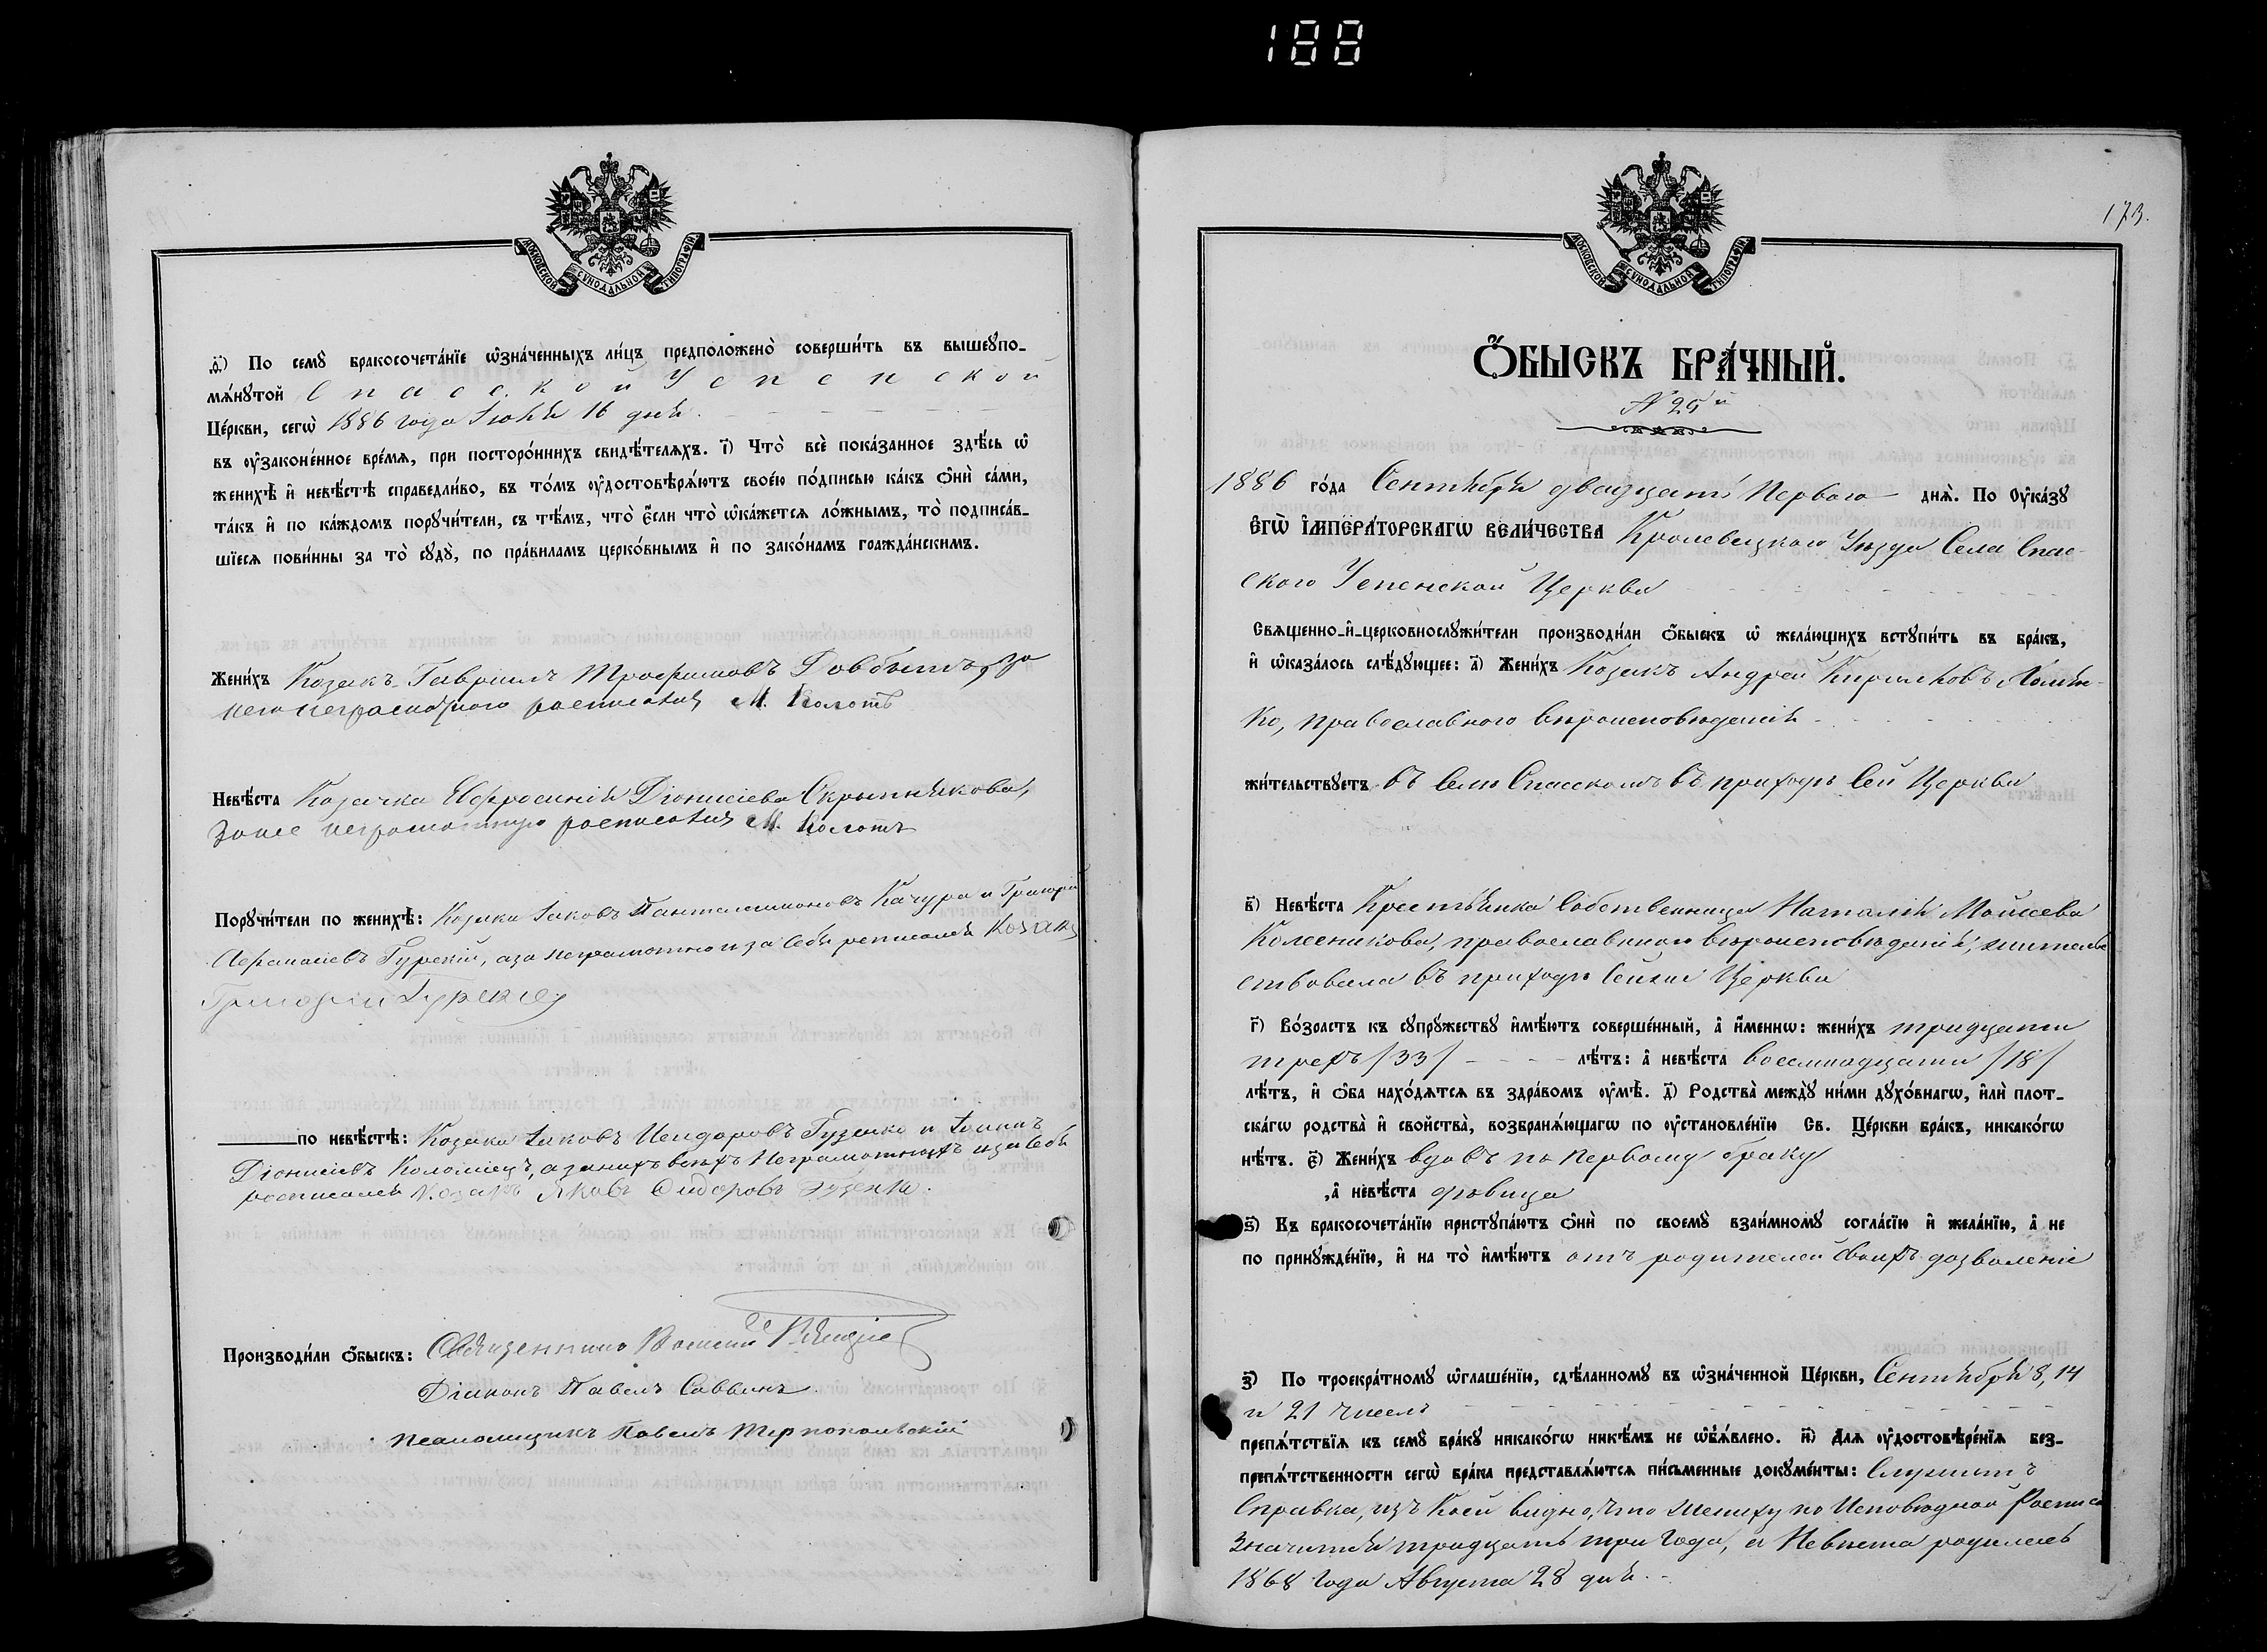 188
МОСКОВСКОЙ СУНОДАЛЬНОЙ ТИПОГРАФІИ
д҃і) По семꙋ̀ бракосочета́нїе ѡ҆зна́ченныхъ ли́цъ предположено̀ соверши́ть въ вышеꙋпо-
мѧ́нꙋтой Спасской Успенской
Це́ркви, сегѡ̀ 1886 года Іюня 16 дня.
въ ᲂу҆законе́нное вре́мѧ, при посторо́ннихъ свидѣ́телѧхъ. і҃) Что̀ всѐ пока́занное здѣ́сь ѡ҆
женихѣ̀ и҆ невѣ́стѣ справедли́во, въ то́мъ ᲂу҆достовѣрѧ́ютъ свое́ю по́дписью ка́къ ѻ҆нѝ са́ми,
та́къ и҆ по ка́ждомъ порꙋчи́тели, съ тѣ́мъ, что̀ є҆́сли что̀ ѡ҆ка́жетсѧ ло́жнымъ, то̀ подписа́в-
шїесѧ пови́нны за то̀ сꙋдꙋ̀, по пра́виламъ церко́внымъ и҆ по зако́намъ гражда́нскимъ.
Жени́хъ Козакъ Гавріилъ Трофимовъ Довбышъ, за
него неграмотнаго росписался М. Колотъ
Невѣ́ста Козачка Евфросинія Діонисіева Скрынникова,
за нее неграмотную росписался М. Колотъ
Порꙋчи́тели по женихѣ̀: Козаки Іаковъ Пантелимоновъ Качура и Григорій
Афанасіевъ Гурскій, а за неграмотного и за себя росписался Козакъ
Григорій Гурскій
по невѣ́стѣ: Козаки Іаковъ Исидоровъ Гузенко и Іоаннъ
Діонисіевъ Коломіецъ, а за нихъ всѣхъ неграмотныхъ и за себя
росписался Козакъ Яковъ Сидоровъ Гузенко.
Производи́ли ѻ҆́быскъ: Священникъ Василій
Діаконъ Павелъ Саввинъ
Псаломщикъ Павелъ Тернопольскій
173.
МОСКОВСКОЙ СУНОДАЛЬНОЙ ТИПОГРАФІИ
Ѻ҆́БЫСКЪ БРА́ЧНЫЙ.
№ 25й
1886 го́да Сентября двадцать перваго днѧ̀. По Оу҆ка́зꙋ
Є҆гѡ̀ І҆мпера́торскагѡ вели́чества Кролевецкого Уѣзда Села Спас-
ского Успенской Церкви
Свѧщенно-и҆-церковнослꙋжи́тели производи́ли ѻ҆́быскъ ѡ҆ жела́ющихъ встꙋпи́ть въ бра́къ,
и҆ ѡ҆каза́лось слѣ́дꙋющее: а҃) Жени́хъ Козакъ Андрей Кириловъ Хомен-
ко, православного вѣроисповѣданія
жи́тельствꙋетъ въ Селѣ Спасскомъ въ приходѣ Сей Церкви
в҃) Невѣ́ста Крестьянка Собственница Наталія Моисеева
Колесникова, православного вѣроисповѣданія, житель-
ствовала въ приходѣ Сей же Церкви
г҃) Во́зрастъ къ сꙋпрꙋ́жествꙋ и҆мѣ́ютъ соверше́нный, а҆ и҆́меннѡ: жени́хъ тридцати
трехъ /33/ лѣ́тъ: а҆ невѣ́ста восемнадцати /18/
лѣ́тъ, и҆ ѻ҆́ба нахо́дѧтсѧ въ здра́вомъ ᲂу҆мѣ̀. д҃) Родства̀ междꙋ̀ ни́ми дꙋхо́внагѡ, и҆лѝ плот-
ска́гѡ родства̀ и҆ свойства̀, возбранѧ́ющагѡ по ᲂу҆становле́нїю Св. Це́ркви бра́къ, никако́гѡ
нѣ́тъ. є҃) Жени́хъ вдовъ по первому браку
, а҆ невѣ́ста дѣвица
ѕ҃) Къ бракосочета́нїю пристꙋпа́ютъ ѻ҆нѝ по своемꙋ̀ взаи́мномꙋ согла́сїю и҆ жела́нїю, а҆ не
по принꙋжде́нїю, и҆ на то̀ и҆мѣ́ютъ отъ родителей своихъ дозволеніе
з҃) По троекра́тномꙋ ѡ҆глаше́нїю, сдѣ́ланномꙋ въ ѡ҆зна́ченной Це́ркви, Сентября 8, 14
и 21 чиселъ
препѧ́тствїѧ къ семꙋ̀ бра́кꙋ никако́гѡ никѣ́мъ не ѡ҆б̾ѧ́влено. и҃) Длѧ ᲂу҆достовѣре́нїѧ без-
препѧ́тственности сегѡ̀ бра́ка представлѧ́ютсѧ пи́сьменные докꙋме́нты: Служитъ
Справка, изъ коей видно, что жениху по Исповѣдной Росписи
значится тридцать три года, а Невѣста родилась
1868 года Августа 28 дня.